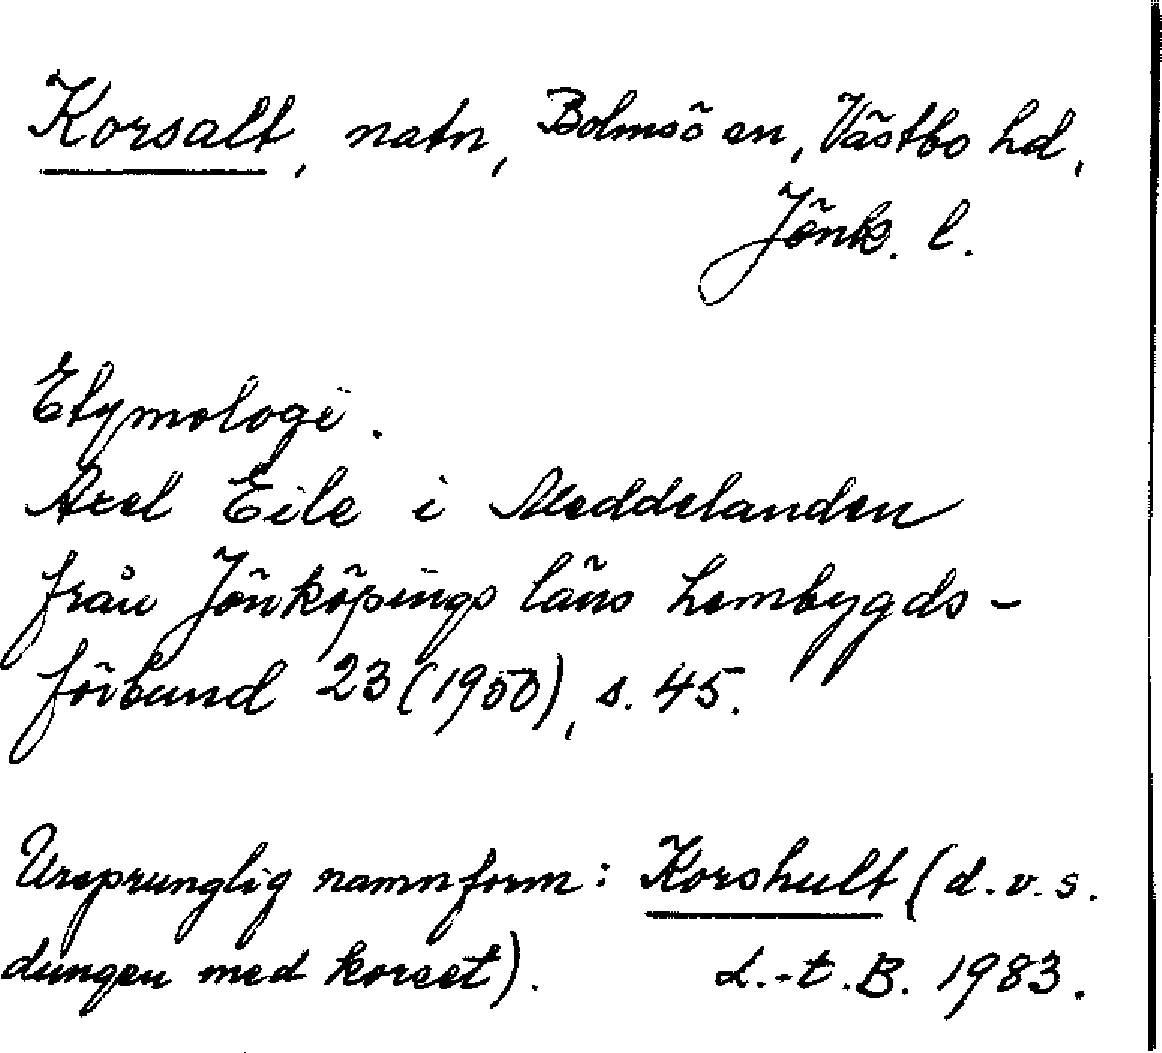 Korsalt, natn, Bolmsö sn, Västbo hd,
Jönk. l.
Etymologi.
Axel Eile i Meddelanden
från Jönköpings läns hembygds-
förbund 23 (1950), s. 45.
Ursprunglig namnform: Korshult (d.v.s.
dungen med korset). L.-t.B. 1983.